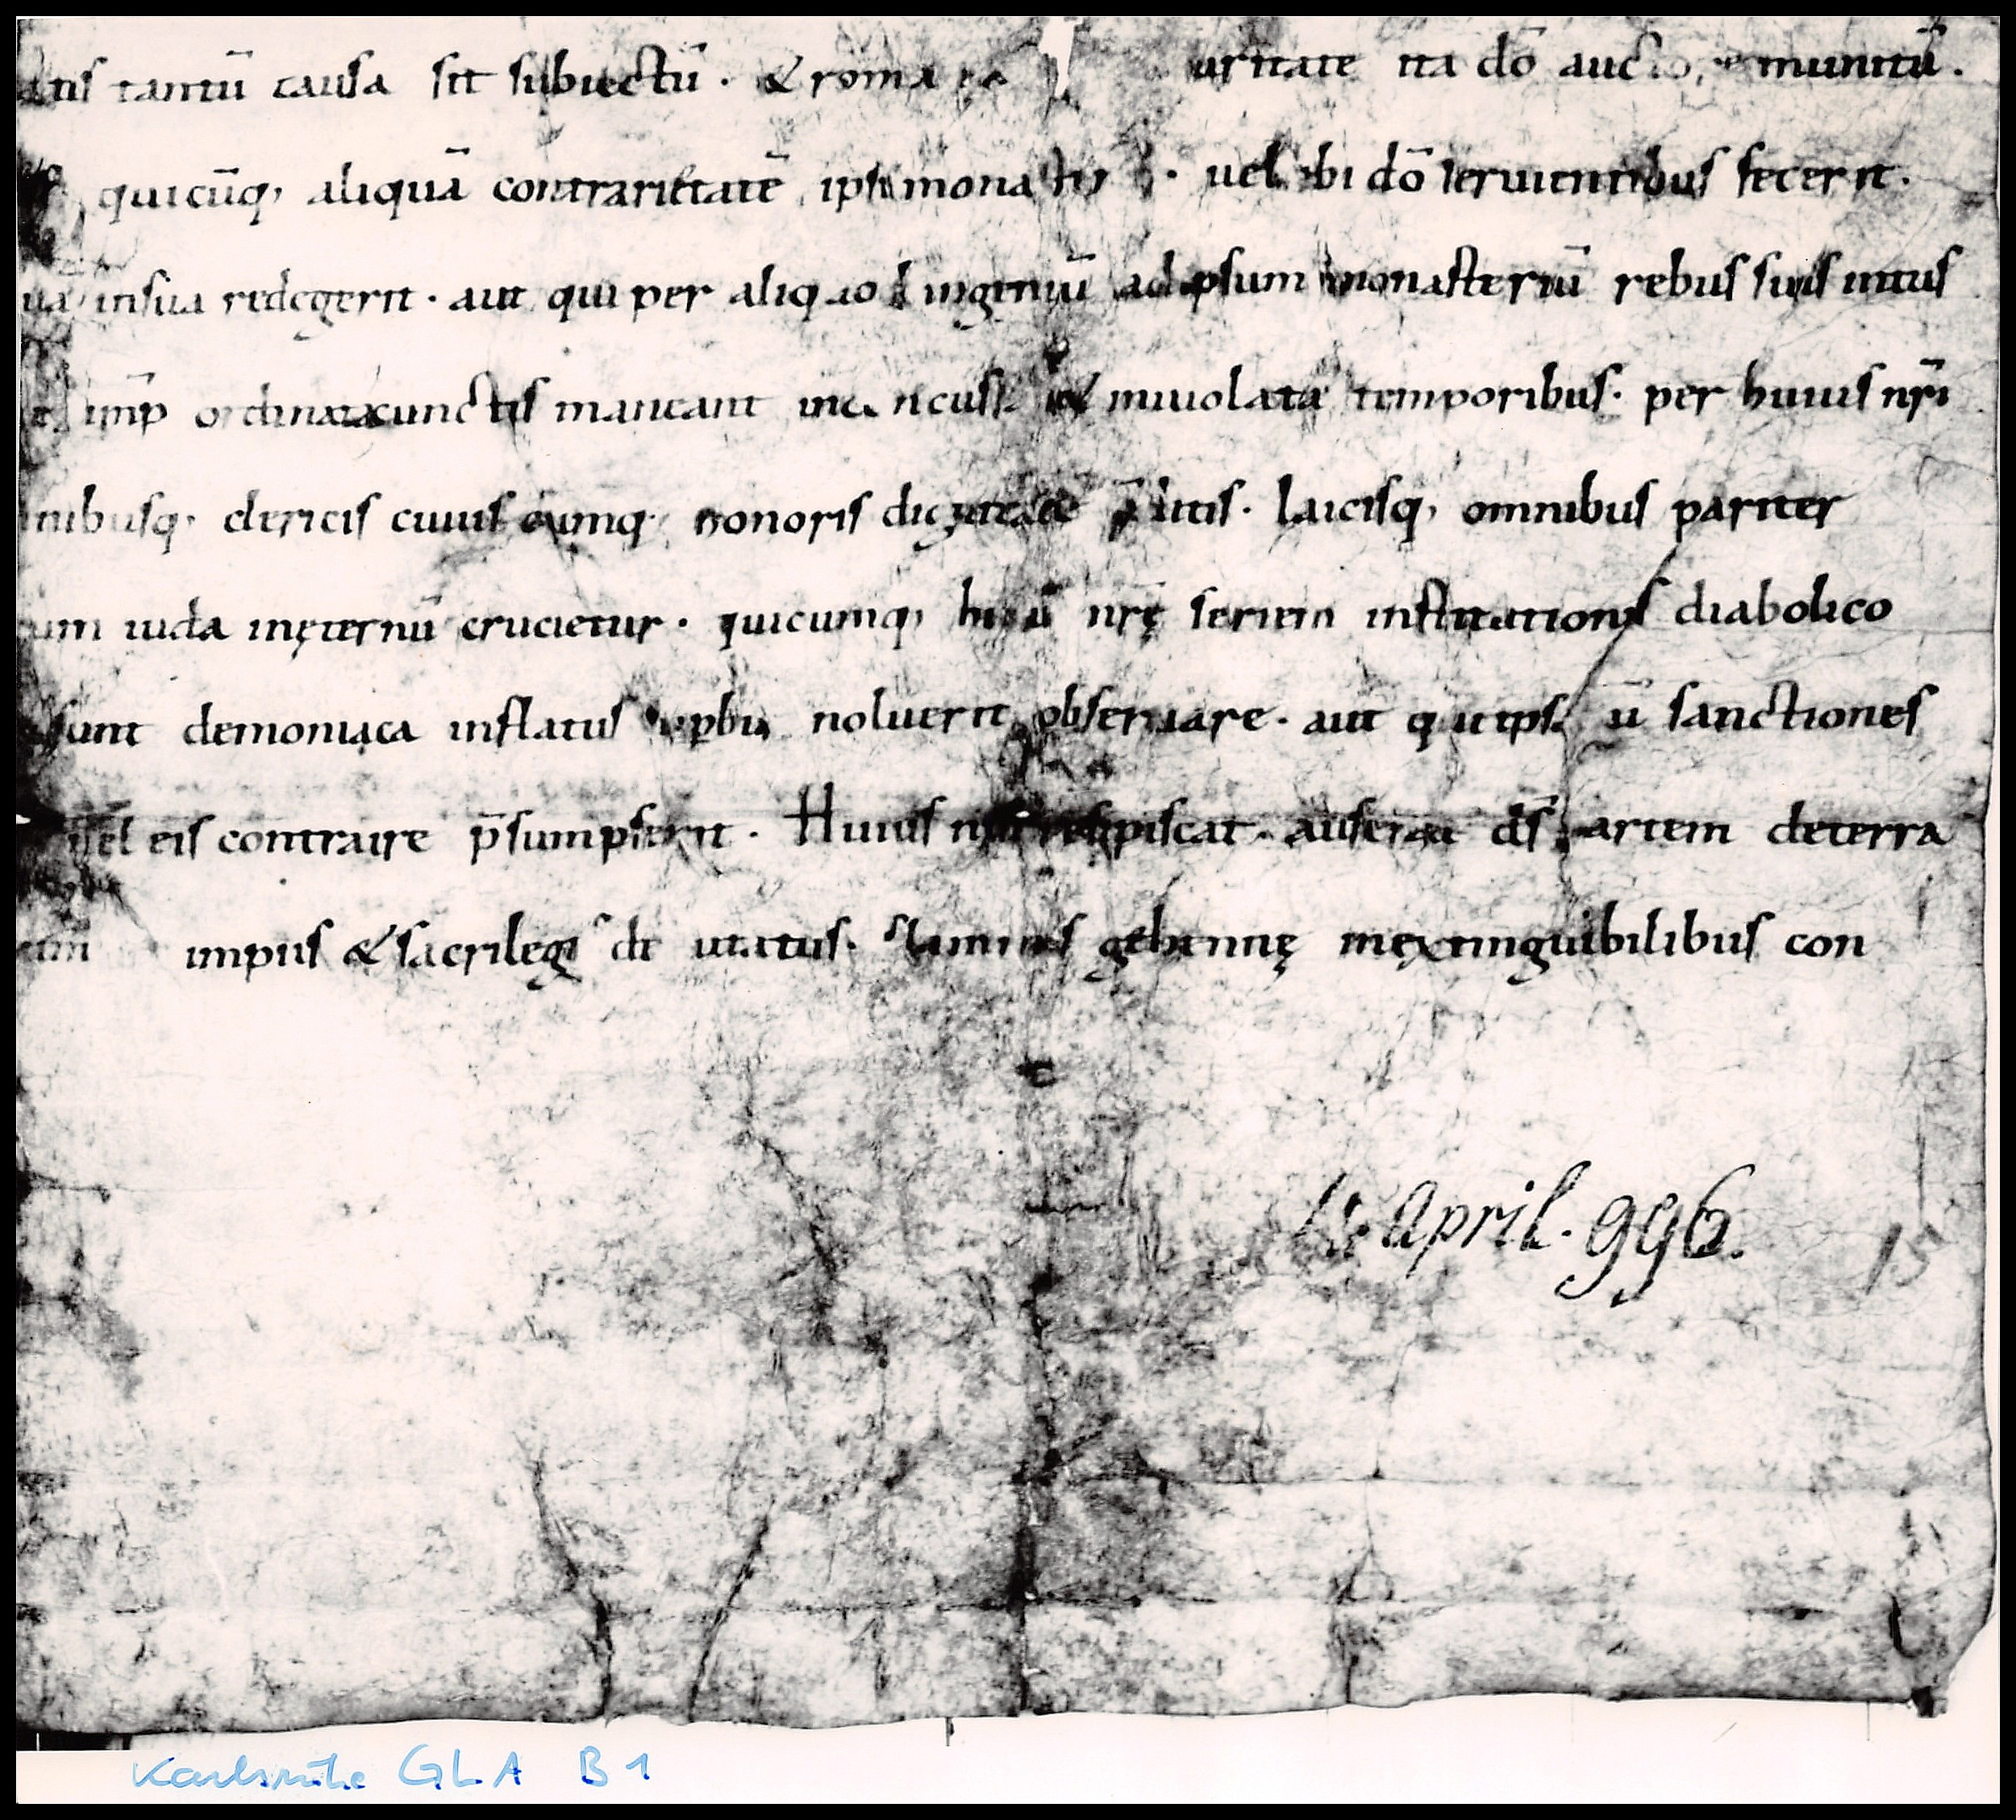 tis tantū causa sit subiectū · & roma uritate ita dō auctore munitū .
quicūq, aliquā contrarietatē ipsi monastr · uel ibi dō seruientibus fecerit ·
insua redegerit · aut qui per aliquod ingeniū ad ipsum monasteriū rebus suis intus
imp̄ ordinata cunctis maneant inconcussa & inuiolata temporibus · per huius nr̄i
nibusq, clericis cuiuscumq, honoris dignitate p̄ditis · laicisq, omnibus pariter
um iuda inęternū crucietur · quicumq, nr̄ę seriem institutionis diabolico
sunt demoniaca inflatus noluerit obseruare · aut qui ips ū sanctiones
uel eis contraire p̄sumpserit · Huius nisi resipiscat · auferat d̄s partem deterra
um impiis & sacrilegis deputatus · flammis gehennę inextinguibilibus con
April · 996 .
15
Karlsruhe GLA B 1